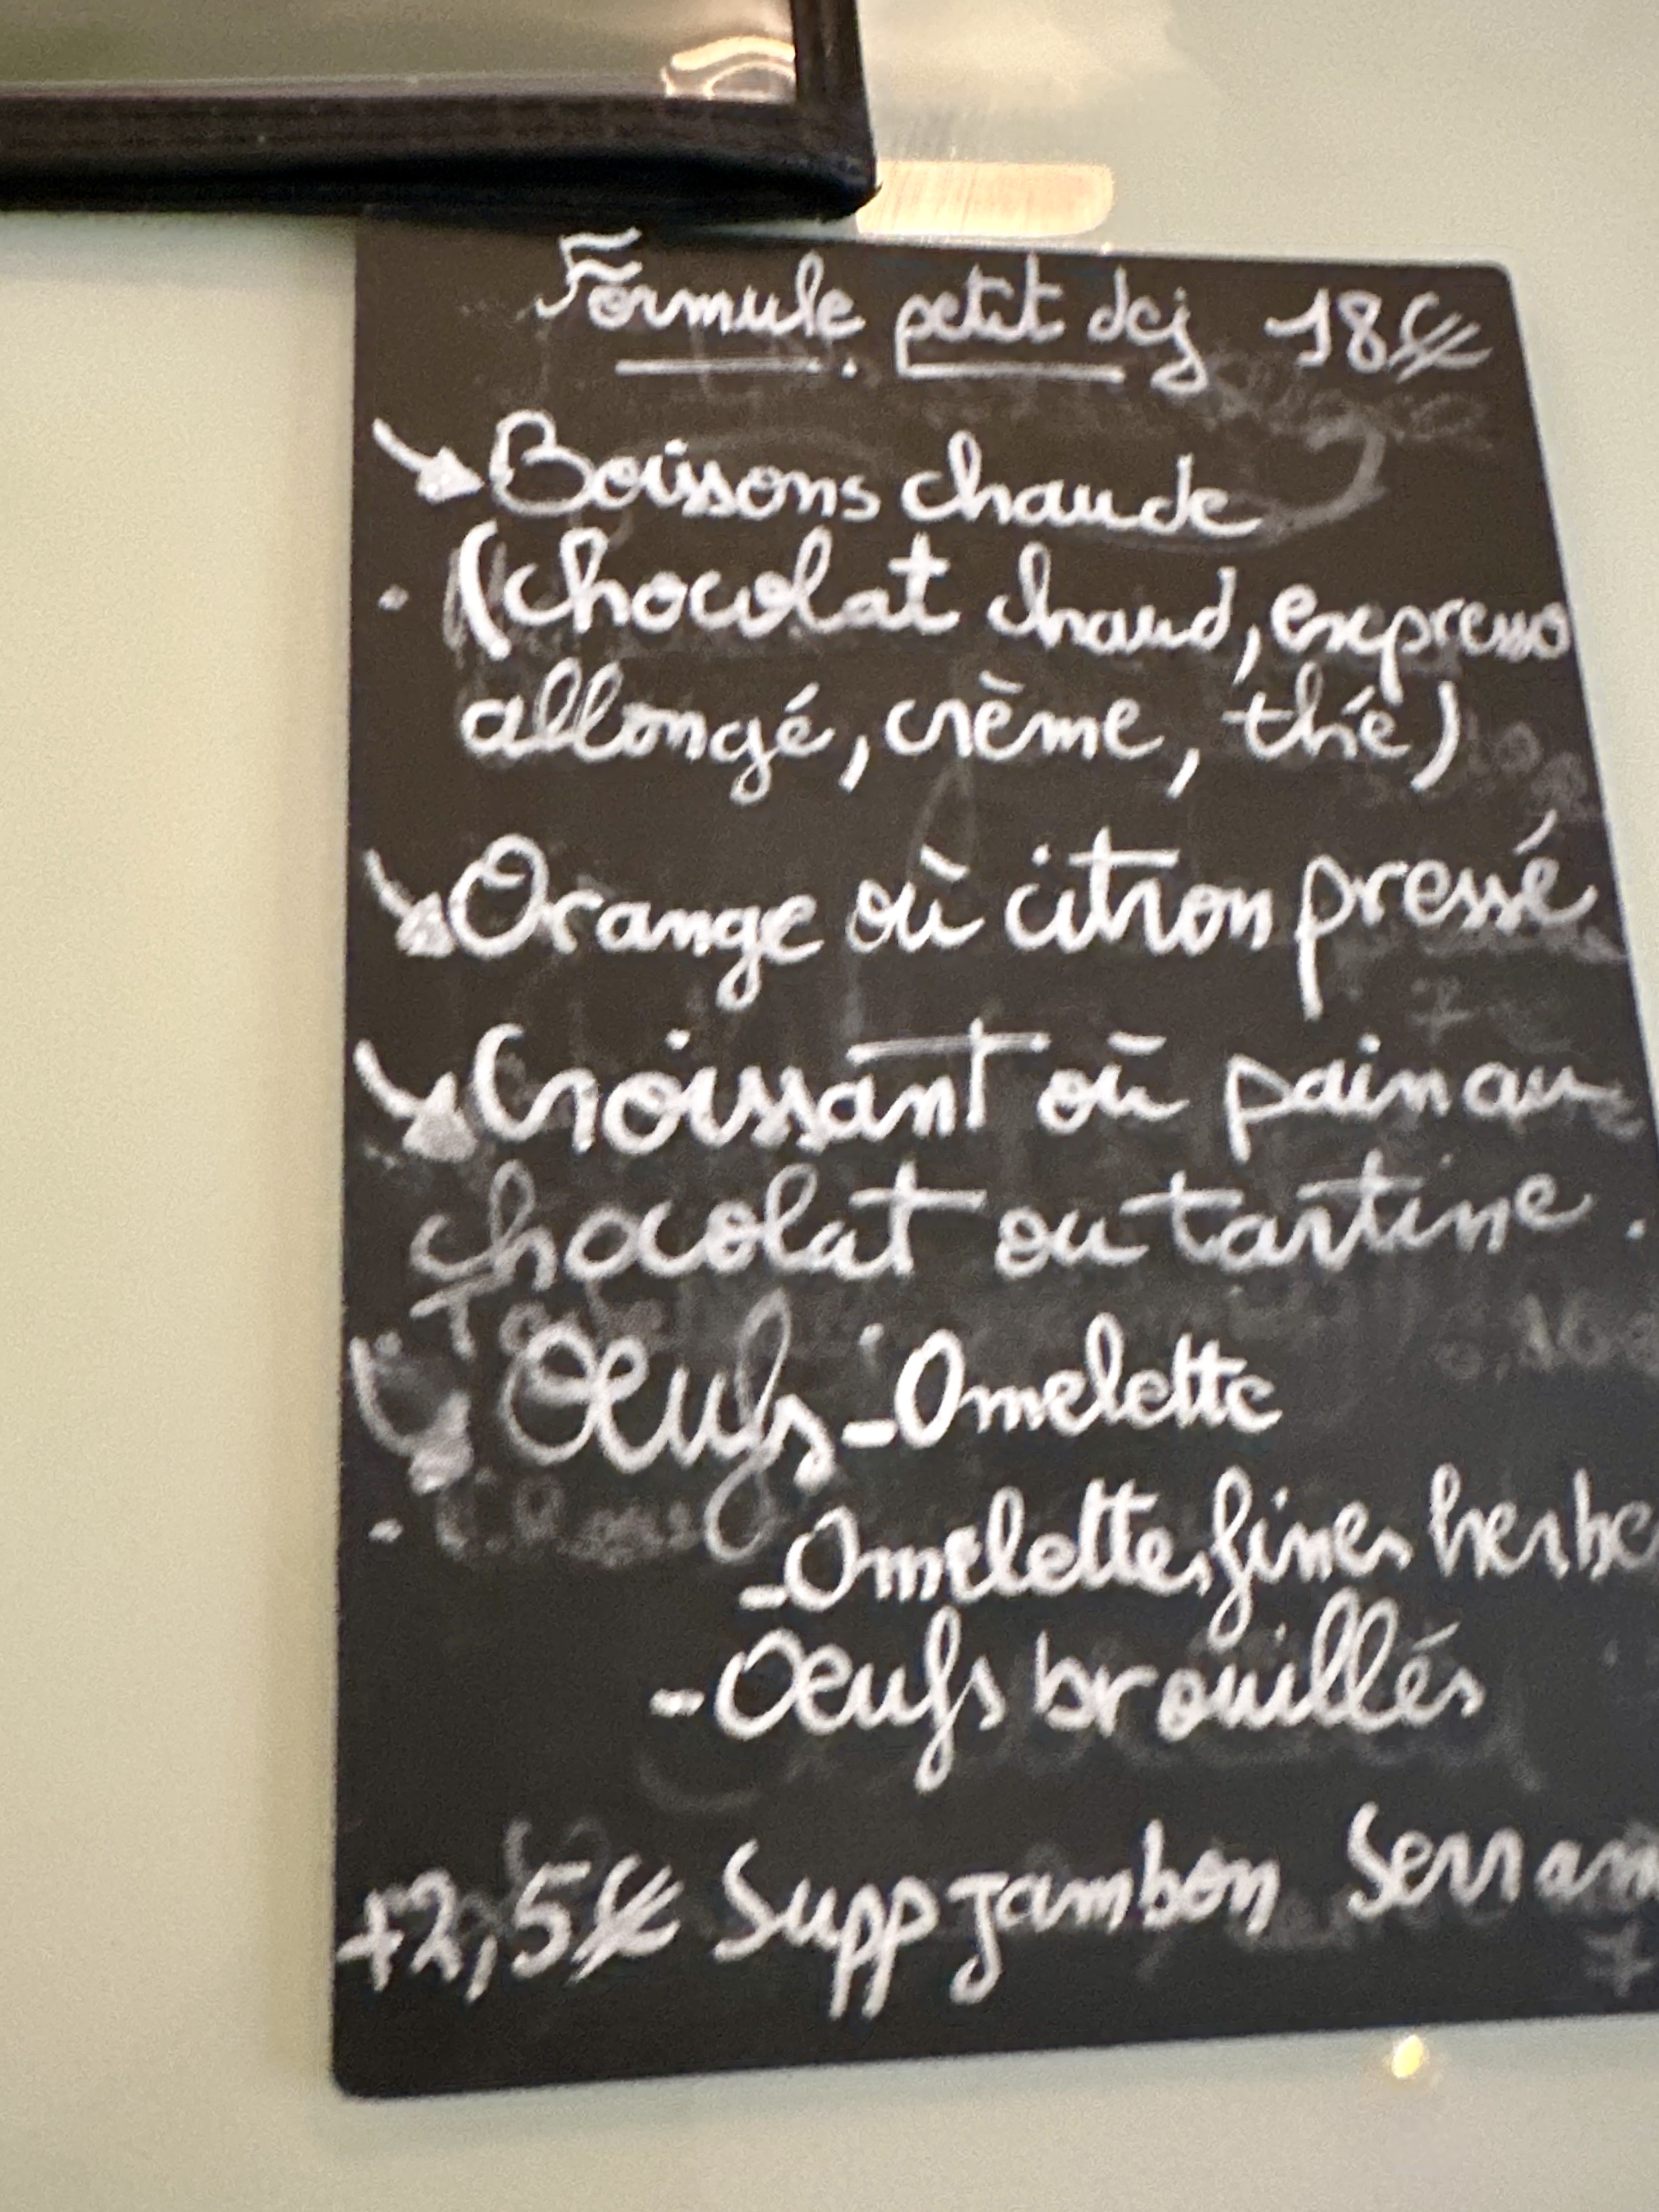 Formule petit dej 18€
Boissons chaude
(chocolat chaud, expresso
allongé, crème, thé)
Orange où citron pressé
Croissant où pain au
chocolat ou tartine.
Oeufs - Omelette
- Omelettes fines herbe
- Oeufs brouillés
+2,5€ Supp Jambon Serran